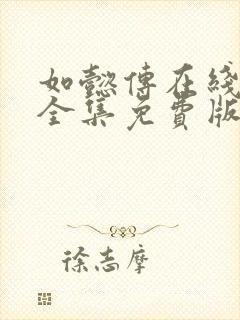 如懿傅在綫
全集免費版
徐志摩